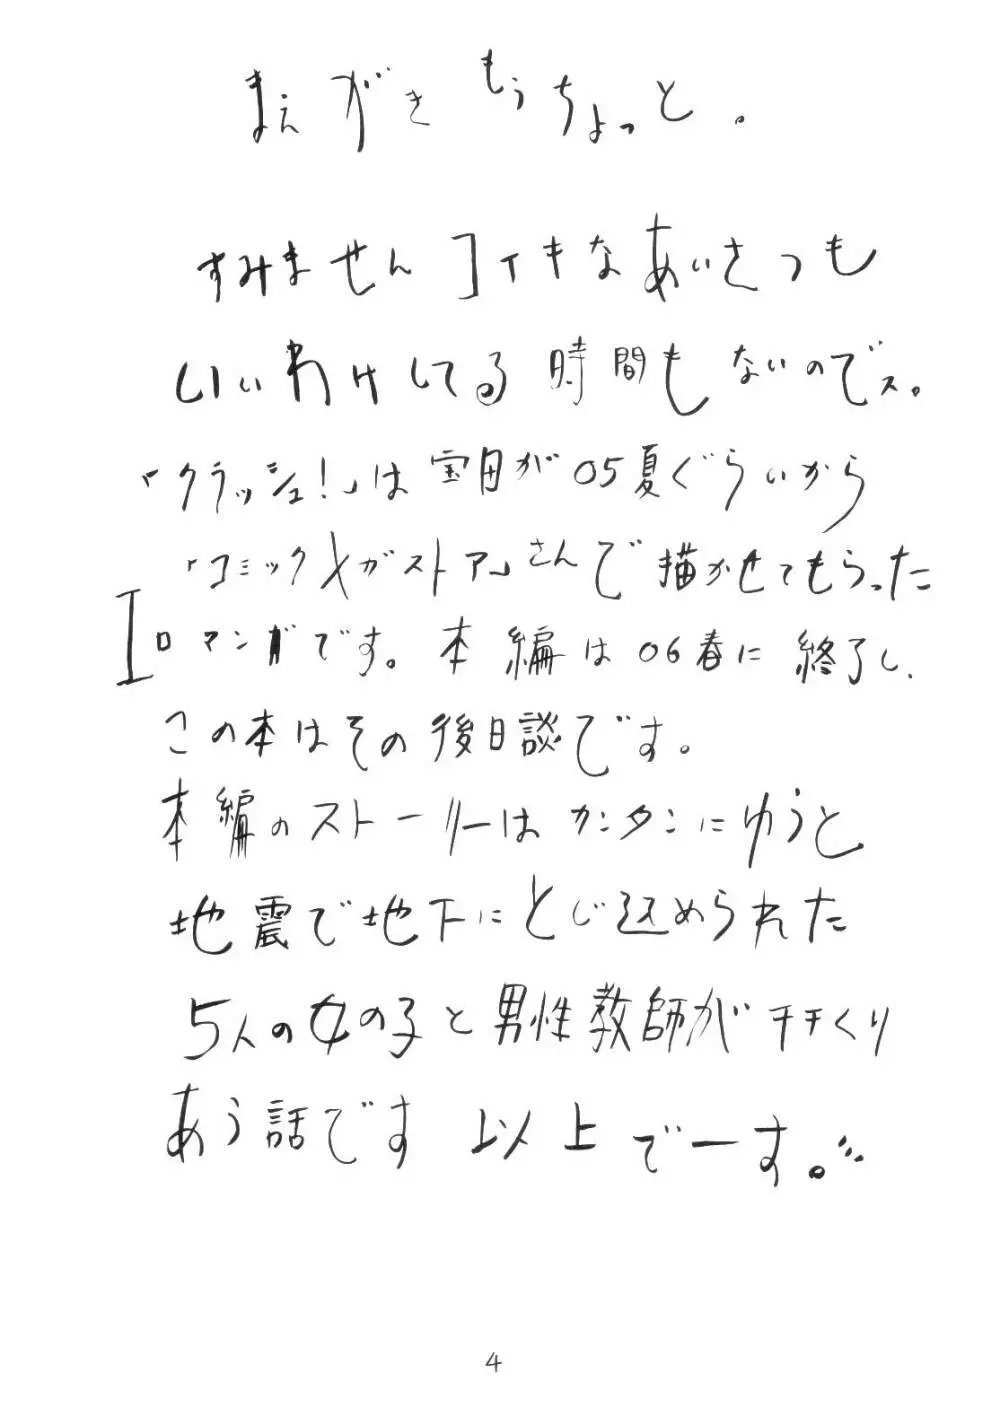 まえがきもうちょっと。
すみません コイキなあいさつも
いいわけしてる時間もないのでス。
「クラッシュ!」は宝田が05夏ぐらいから
「コミックメガストア」さんで描かせてもらった
エロマンガです。本編は06春に終了し、
この本はその後日談です。
本編のストーリーはカンタンにゆうと
地震で地下にとじ込められた
5人の女の子と男性教師がチチくり
あう話です 以上でーす。
4